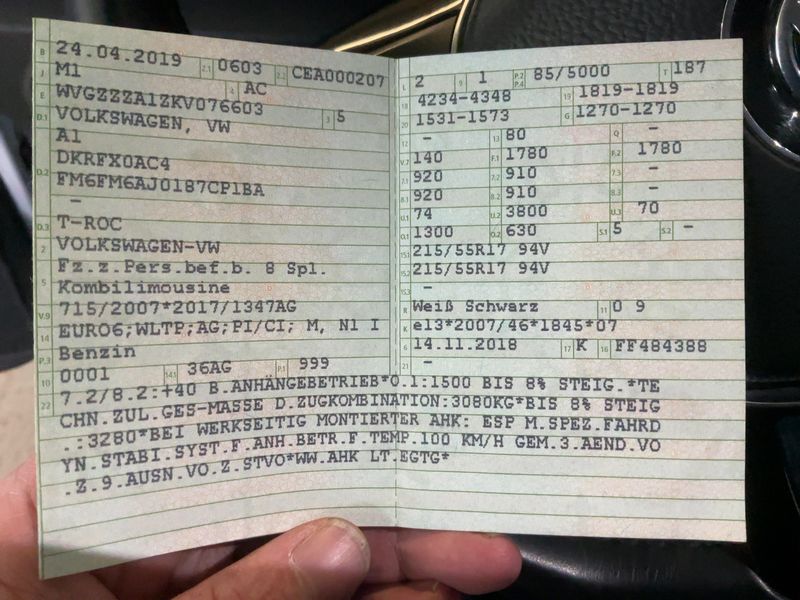 B 24.04.2019 2.1 0603 2.2 CEA000207
J M1 4 AC
E WVGZZZA1ZKV076603 3 5
D.1 VOLKSWAGEN, VW
A1
D.2 DKRFX0AC4
FM6FM6AJ0187CP1BA
-
D.3 T-ROC
2 VOLKSWAGEN-VW
5 Fz.z.Pers.bef.b. 8 Spl.
Kombilimousine
V.9 715/2007*2017/1347AG
14 EURO6;WLTP;AG;PI/CI; M, N1 I
P.3 Benzin
10 0001 14.1 36AG P.1 999
L 2 9 1 P.2 P.4 85/5000 T 187
18 4234-4348 19 1819-1819
20 1531-1573 G 1270-1270
12 - 13 80 Q -
V.7 140 F.1 1780 F.2 1780
7.1 920 7.2 910 7.3 -
8.1 920 8.2 910 8.3 -
U.1 74 U.2 3800 U.3 70
O.1 1300 O.2 630 S.1 5 S.2 -
15.1 215/55R17 94V
15.2 215/55R17 94V
15.3 -
R Weiß Schwarz 11 0 9
K e13*2007/46*1845*07
6 14.11.2018 17 K 16 FF484388
21 -
22 7.2/8.2:+40 B.ANHÄNGEBETRIEB*O.1:1500 BIS 8% STEIG.*TE
CHN.ZUL.GES-MASSE D.ZUGKOMBINATION:3080KG*BIS 8% STEIG
.:3280*BEI WERKSEITIG MONTIERTER AHK: ESP M.SPEZ.FAHRD
YN.STABI.SYST.F.ANH.BETR.F.TEMP.100 KM/H GEM.3.AEND.VO
.Z.9.AUSN.VO.Z.STVO*WW.AHK LT.EGTG*